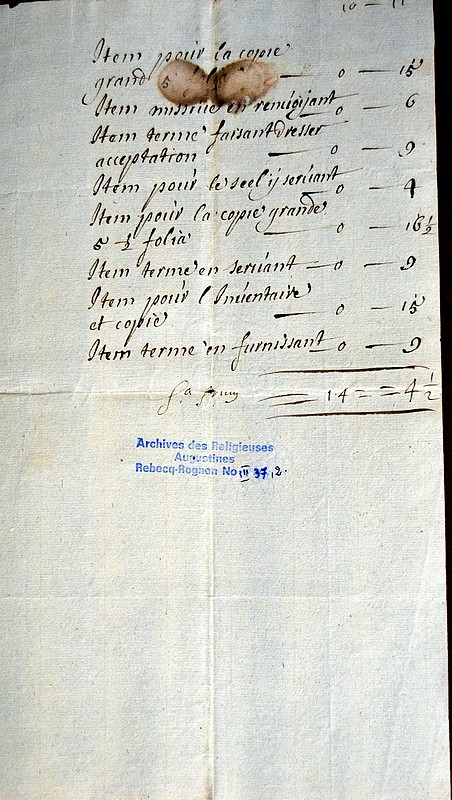 10 — 11
Item pour la copie
grand 5 — 0 — 15
Item missiue en remigijant — 0 — 6
Item terme faisant Dresser
acceptation — 0 — 9
Item pour le seel ij seruant — 0 — 4
Item pour la copie grande
5 ½ folia — 0 — 16 ½
Item terme en seruant — 0 — 9
Item pour l'Inuentaire
et copie — 0 — 15
Item terme en furnissant — 0 — 9
14 = = 4 ½
Archives des Religieuses
Augustines
Rebecq-Rognon No. III 37, 2.